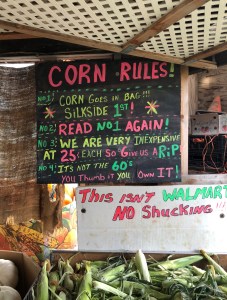 CORN RULES!
NO1: CORN GOES IN BAG!!!
SILKSIDE 1ST!
NO2: READ NO1 AGAIN!
NO3: WE ARE VERY INEXPENSIVE
AT 25¢ EACH SO GIVE US A RiP!
NO4: IT'S NOT THE 60'S
YOU THUMB iT YOU OWN IT!
THIS ISN'T WALMART
NO SHUCKING!!!